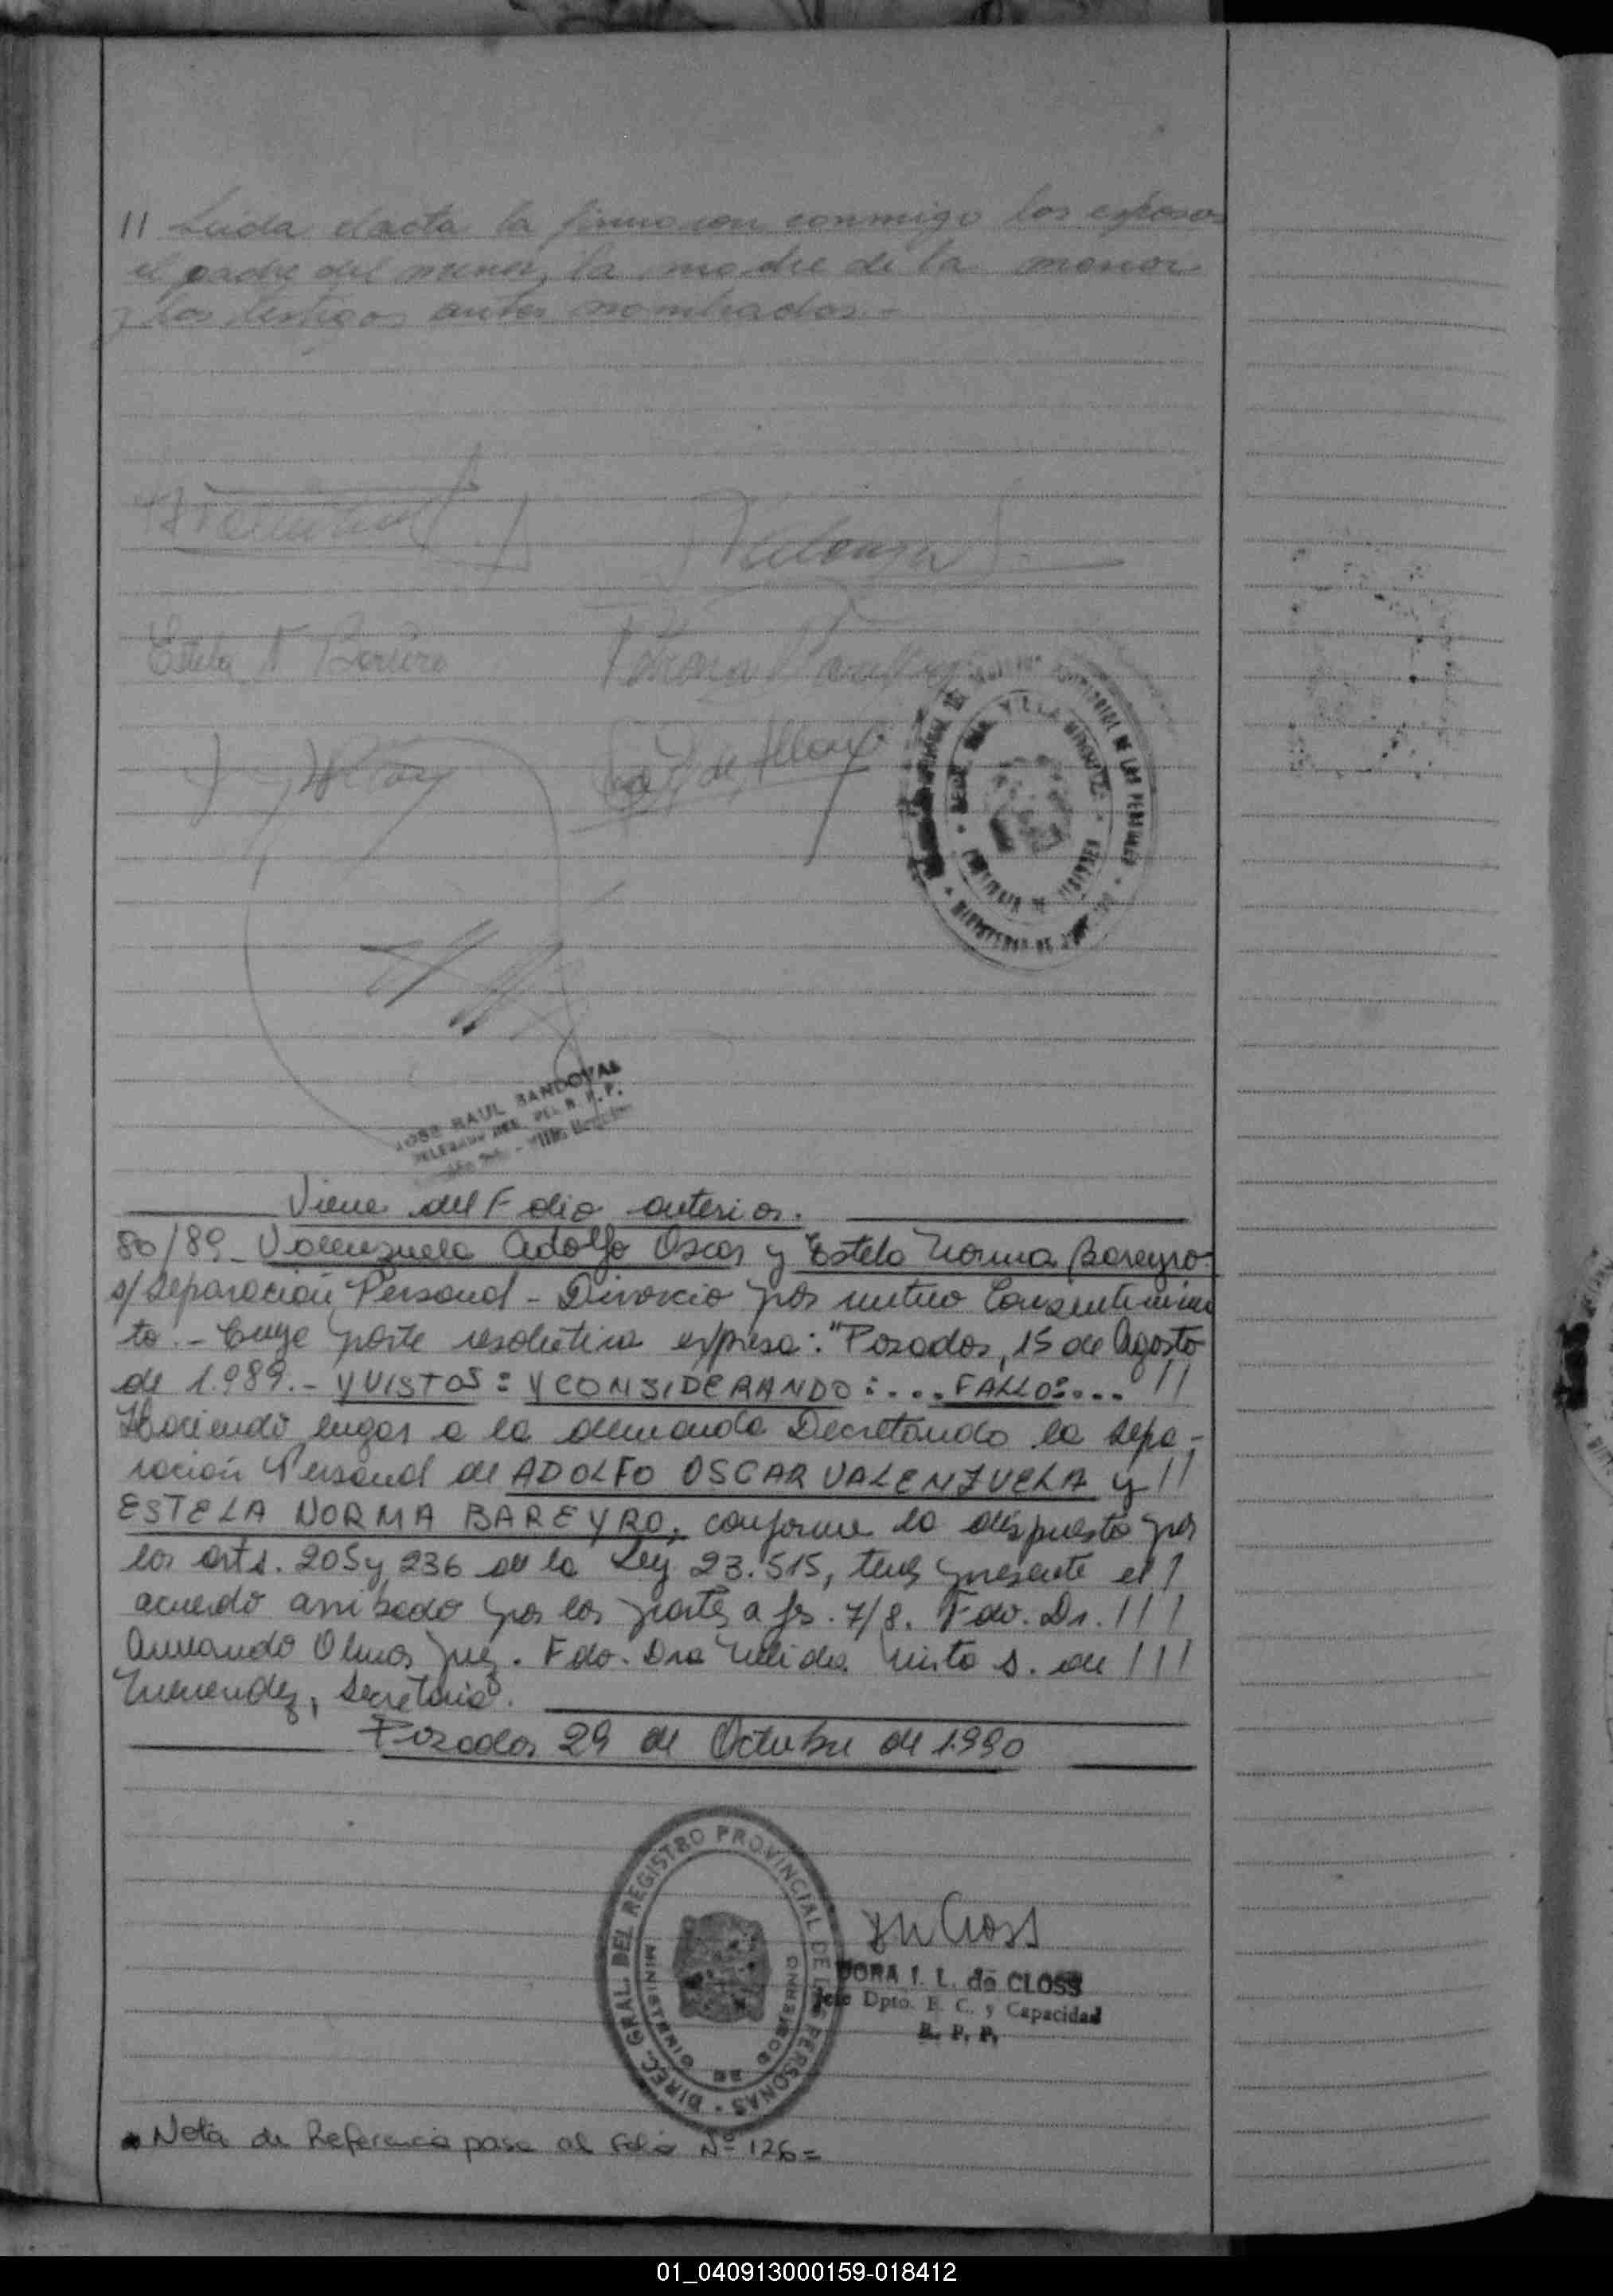 11 Leida el acta la firmaron conmigo los esposos
el padre del menor, la madre de la menor
y los testigos antes nombrados.-
Estela N Bareiro
JOSE RAUL SANDOVAL
Viene del Folio anterior.
80/89_ Valenzuela Adolfo Oscar y Estela Norma Bareyro.
s/Separación Personal - Divorcio por mutuo Consentimien
to.- Cuya parte resolutiva expresa: "Posadas, 15 de Agosto
de 1.989.- Y VISTOS: Y CONSIDERANDO:... FALLO:... //
Haciendo lugar a la demanda Decretando la Sepa-
ración Personal de ADOLFO OSCAR VALENZUELA y //
ESTELA NORMA BAREYRO, conforme lo dispuesto por
los arts. 205 y 236 de la Ley 23.515, tener presente el /
acuerdo arribado por las partes a fs. 7/8. Fdo. Dr. ///
Armando Olmos Juez. Fdo. Dra Mirta S. de ///
Menendez, Secretaria.
Posadas 29 de Octubre de 1.990
DIREC. GRAL. DEL REGISTRO PROVINCIAL DE LAS PERSONAS
MINISTERIO DE GOBIERNO
DORA I. L. de CLOSS
Jefe Dpto. E. C. y Capacidad
R. P. P.
Nota de Referencia pasa al Folio Nº 126=
01_040913000159-018412